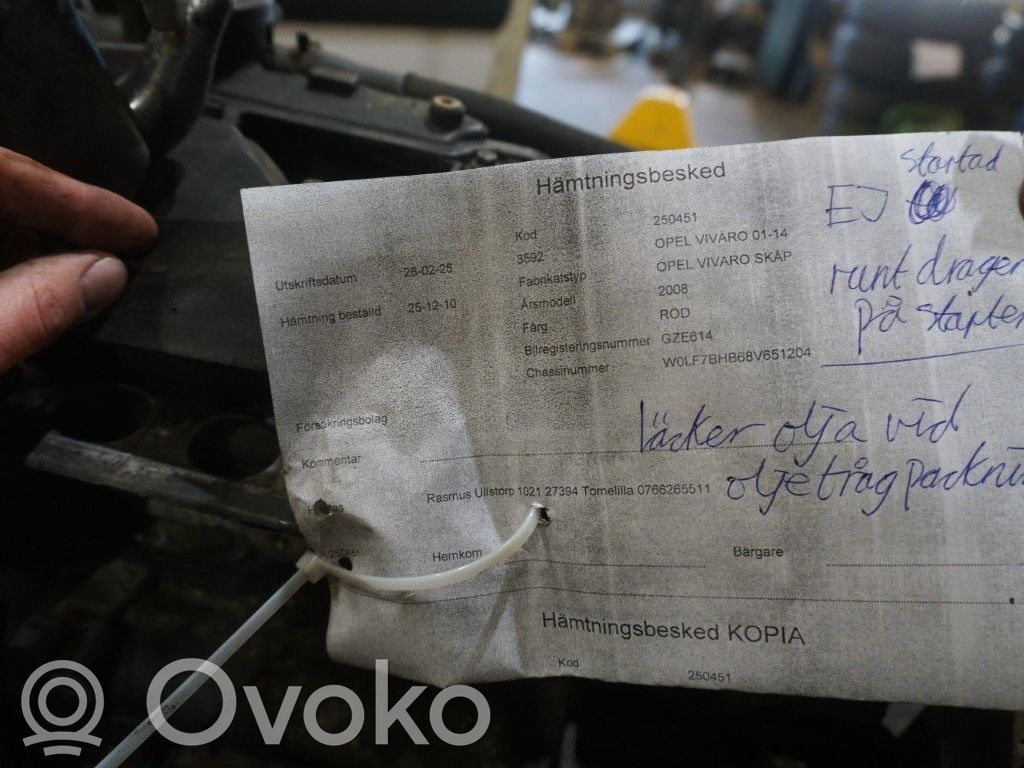 Hämtningsbesked
startad
EJ
Utskriftsdatum 26-02-25
Kod 250451
3592 OPEL VIVARO 01-14
Hämtning beställd 25-12-10
Fabrikatstyp OPEL VIVARO SKÅP
Årsmodell 2008
Färg RÖD
Bilregisteringsnummer GZE614
Chassinummer W0LF7BHB68V651204
runt dragen
på starten
Försäkringsbolag
läcker olja vid
Kommentar
oljetråg packni
Rasmus Ullstorp 1021 27394 Tomelilla 0766265511
250451 Hemkom Bärgare
Hämtningsbesked KOPIA
Kod 250451
Ovoko